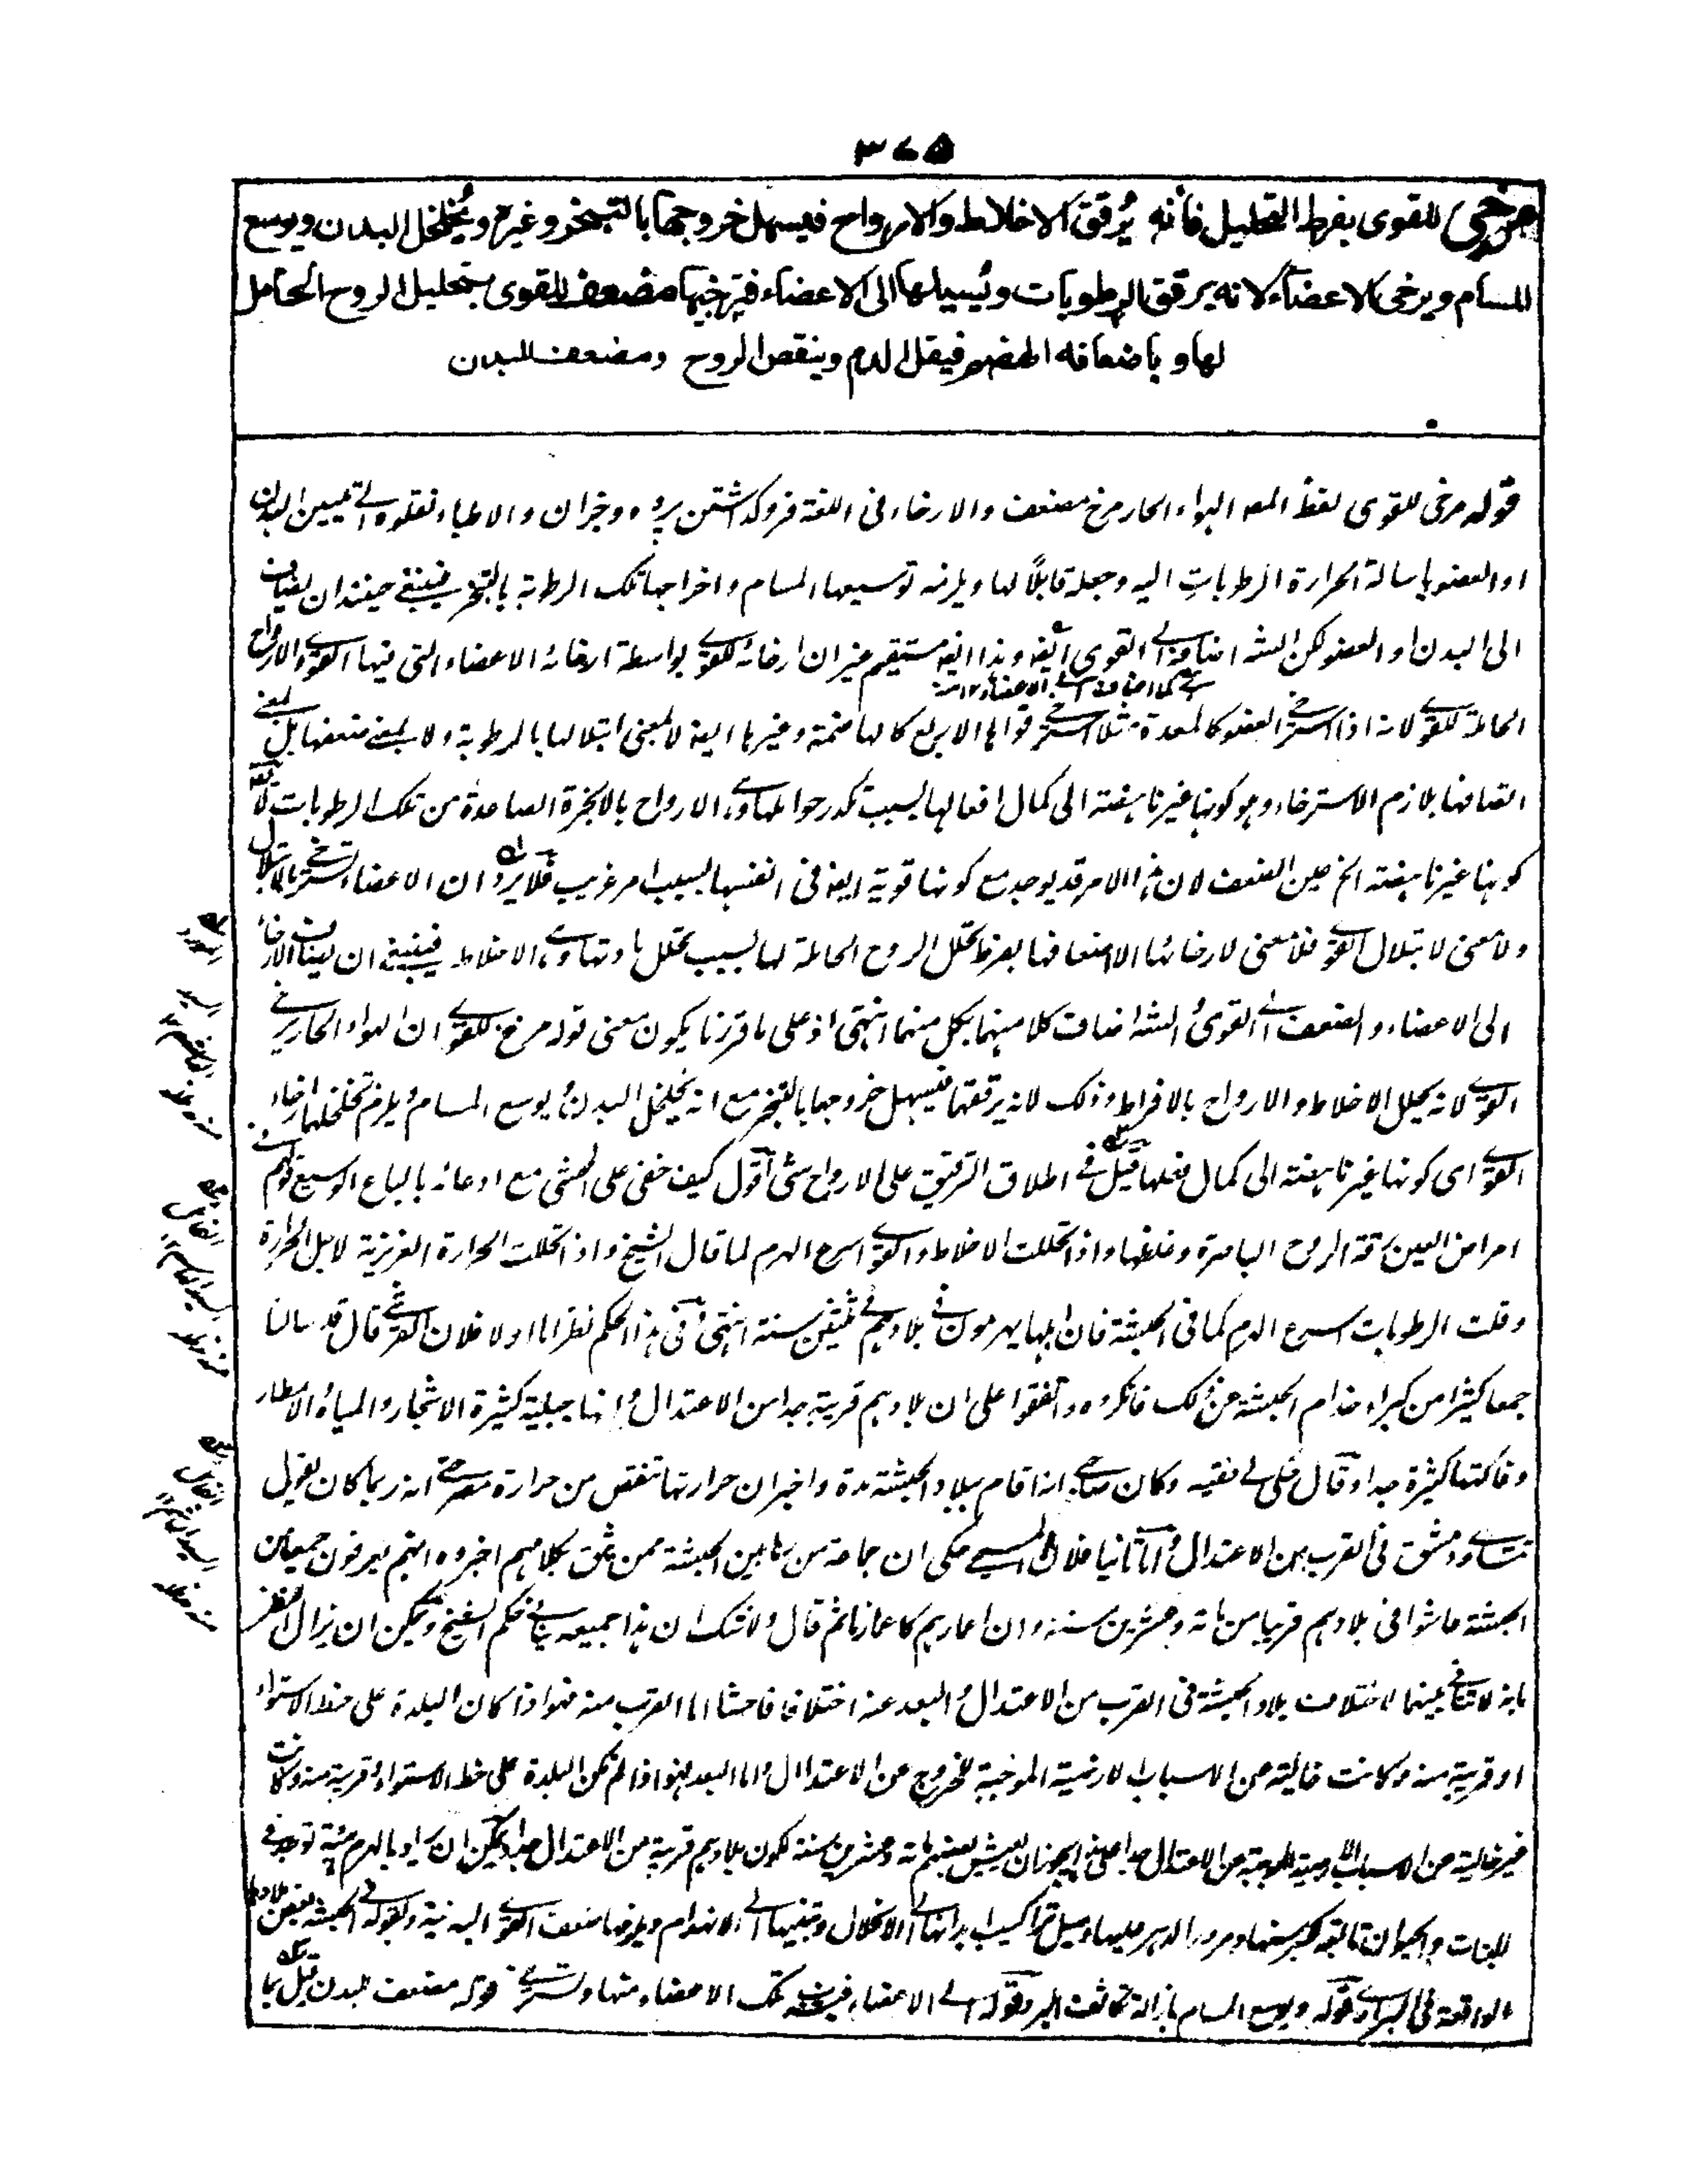 ٣٧٥
مرخي للقوى بفرط التحليل فانه يُرقق الاخلاط والارواح فيسهل خروجها بالتبخر وغيره ويُخلخل البدن ويوسع
المسام ويرخى الاعضاء لانه يرقق الرطوبات ويُسيلها الى الاعضاء فترخيها مضعف للقوى بتحليل الروح الحامل
لها و باضعافه الهضم فيقل الدم وينقص الروح ومضعف للبدن
قوله مرخى للقوى لفظ المص الهواء الحار مرخ مضعف والارخاء فى اللغة فروگذاشتن پرده وجزان والاطباء نقلوه الى تليين البدن
او العضو باسالة الحرارة الرطوبات اليه وجعله قابلاً لها ويلزمه توسيعها المسام واخراجها تلك الرطوبة بالتبخر فينبغى حينئذ ان يضاف
الى البدن او العضو لكن الش اضافه الى القوى ايضا وهذا ايضا مستقيم غير ان ارخائه للقوى بواسطة ارخائه الاعضاء التى فيها القوى والارواح
اى كما اضافه الى الاعضاء ١٢ منه
الحاملة للقوى لانه اذا استرخى العضو كالمعدة مثلا استرخى قواها الاربع كالهاضمة وغيرها ايضا لا بمعنى ابتلالها بالرطوبة ولا بمعنى ضعفها بل بمعنى
اتصافها بلازم الاسترخاء وهو كونها غير ناهضة الى كمال افعالها بسبب تكدر حواملها وهى الارواح بالابخرة الصاعدة من تلك الرطوبات
كونها غير ناهضة الخ عين الضعف لان هذا الامر قد يوجد مع كونها قوية ايضا فى انفسها بسبب امر غريب فلا يرد ان الاعضاء تسترخى بالابتلال
ولا معنى لابتلال القوى فلا معنى لارخائها الا اضعافها بفرط تحلل الروح الحاملة لها بسبب تحلل مادتها وهى الاخلاط فينبغى ان يضاف الارخاء
الى الاعضاء والضعف الى القوى الش اضاف كلا منهما بكل منهما انتهى اذ على ما قررنا يكون معنى قوله مرخ للقوى ان الهواء الحار يرخى
القوى لانه يحلل الاخلاط والارواح بالافراط وذلك لانه يرققها فيسهل خروجها بالتبخر مع انه يخلخل البدن ويوسع المسام ويلزم تخلخلها ارخاء
القوى اى كونها غير ناهضة الى كمال فعلها قيل فى اطلاق الترقيق على الارواح شئ اقول كيف خفى على المحشى مع ادعائه بالباع الوسيع قولهم فى
امراض العين رقة الروح الباصرة وغلظها واذا تحللت الاخلاط والقوى اسرع الهرم لما قال الشيخ واذا تحللت الحرارة الغريزية لاهل الحرارة
وقلت الرطوبات اسرع الهرم كما فى الحبشة فان اهلها يهرمون فى بلادهم فى ثلثين سنة انتهى وفى هذا الحكم نظر اما اولا فلان القرشى قال قد سالنا
جمعا كثيرا من كبراء خدام الحبشة عن ذلك فانكروه واتفقوا على ان بلادهم قريبة جدا من الاعتدال وانها جبلية كثيرة الاشجار والمياه والامطار
وفاكهتها كثيرة جدا وقال لى فقيه وكان صالحا انه اقام ببلاد الحبشة مدة واخبر ان حرارتها تنقص من حرارة مصر حتى انه ربما كان يقول
ودمشق فى القرب من الاعتدال واما ثانيا فلان المسيحى حكى ان جماعة من رهابين الحبشة ممن يثق بكلامهم اخبروه انهم يعرفون جمعا من
الحبشة عاشوا فى بلادهم قريبا من مائة وعشرين سنة وان اعمارهم كاعمارنا ثم قال ولا شك ان هذا جميعه ينافى حكم الشيخ ويمكن ان يزال النظر
بانه لا تنافى بينهما لاختلاف بلاد الحبشة فى القرب من الاعتدال والبعد عنه اختلافا فاحشا اما القرب منه فهو اذا كان البلدة على خط الاستواء
او قريبة منه وكانت خالية من الاسباب الارضية الموجبة للخروج عن الاعتدال واما البعد فهو اذا لم تكن البلدة على خط الاستواء او قريبة منه وكانت
غير خالية من الاسباب الارضية الموجبة عن الاعتدال جدا فعلى هذا يجوز ان يعيش بعضهم مائة وعشرين سنة لكون بلادهم قريبة من الاعتدال جدا ويمكن ان يراد بالهرم هيئة توجد فى
للنبات والحيوان تابعة لكبر سنها ومرور الدهر عليها وميل تراكيب ابدانها الى الانحلال وتهيئها الى الانهدام ويلزمها ضعف القوى البدنية وبقوله فى الحبشة بعض بلادها
الواقعة فى البرارى قوله ويوسع المسام بازالة تكاثف البرد وقوله الى الاعضاء تلك الاعضاء منها وتسترخى قوله مضعف للبدن قيل بما